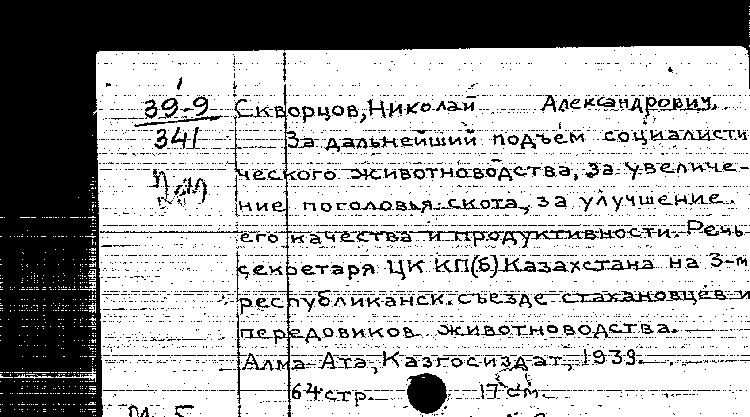 39-9 Скворцов, Николай Александрович.
341 За дальнейший подъем социалисти
ческого животноводства, за увеличе-
ние поголовья скота, за улучшение
его качества и продуктивности. Речь
секретаря ЦК КП(б) Казахстана на 3-м
республиканск. съезде стахановцев и
передовиков животноводства.
Алма Ата, Казгосиздат, 1939.
64 стр. 17 см.